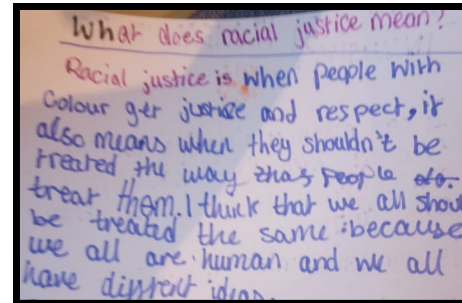 What does racial justice mean?
Racial justice is when people with
Colour get justice and respect, it
also means when they shouldn't be
treated the way that people do.
treat them. I think that we all shou
be treated the same because
we all are human and we all
have diffrent ideas.